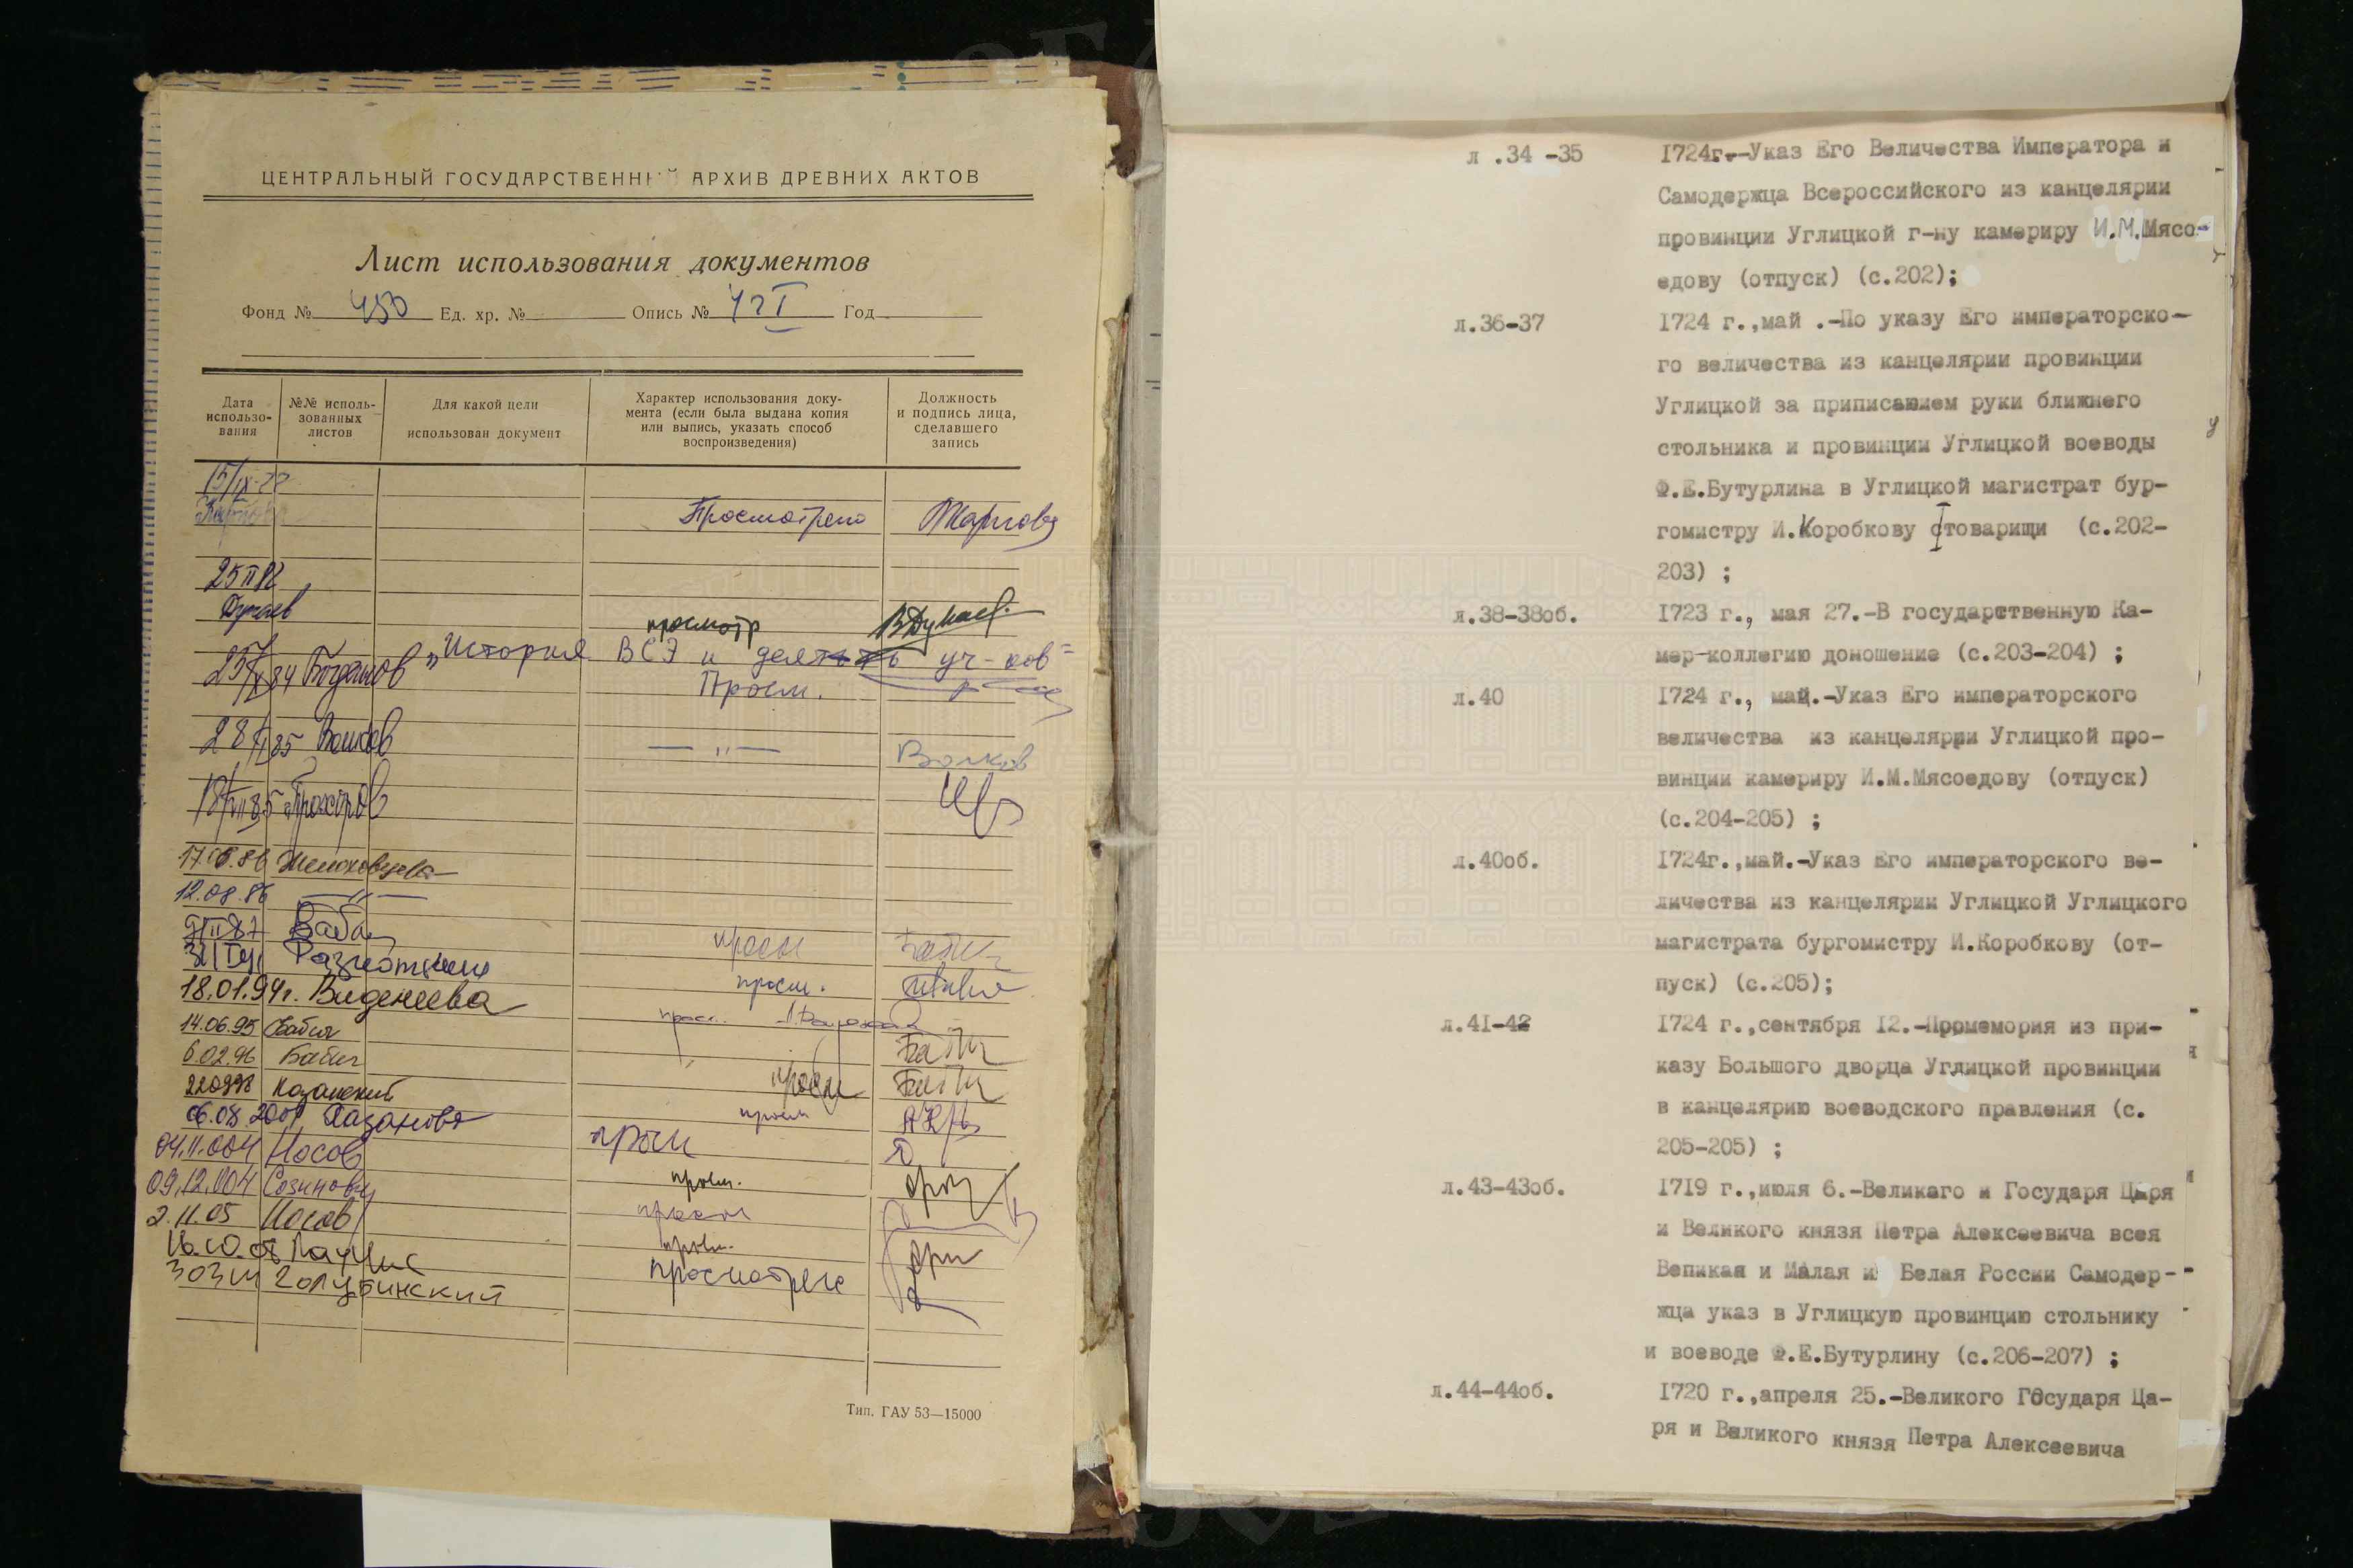 ЦЕНТРАЛЬНЫЙ ГОСУДАРСТВЕННЫЙ АРХИВ ДРЕВНИХ АКТОВ
Лист использования документов
Фонд № 450 Ед. хр. № Опись № Год
Дата использо-
вания
№№ исполь-
зованных
листов
Для какой цели
использован документ
Характер использования доку-
мента (если была выдана копия
или выпись, указать способ
воспроизведения)
Должность
и подпись лица,
сделавшего
запись
15/IX-77
Просмотрено
25 II 82
Дунаев просмотр ВДунаев
84 Богданов „История ВСЭ и деят уч-ков"
Просм.
85 Волков — „ — Волков
85 Прохоров
86 Желоховцева
12.08.86 — „ —
87 Бабич просм Бабич
просм.
18.01.94г. Виденеева просм.
14.06.95 Бабич Бабич
6.02.96 Бабич просм Бабич
220998 Казанский просм
06.08.2001 Казакова просм
04.11.004 Носов
09.12.004 просм.
2.11.05 Носов просм
просм.
Голубинский просмотрено
Тип. ГАУ 53—15000
л .34 -35 1724г.-Указ Его Величества Императора и
Самодержца Всероссийского из канцелярии
провинции Углицкой г-ну камериру И.М.Мясо-
едову (отпуск) (с.202);
л.36-37 1724 г.,май .-По указу Его императорско-
го величества из канцелярии провинции
Углицкой за приписанием руки ближнего
стольника и провинции Углицкой воеводы
Ф.Е.Бутурлина в Углицкой магистрат бур-
гомистру И.Коробкову стоварищи (с.202-
203) ;
л.38-38об. 1723 г., мая 27.-В государственную Ка-
мер-коллегию доношение (с.203-204) ;
л.40 1724 г., май.-Указ Его императорского
величества из канцелярии Углицкой про-
винции камериру И.М.Мясоедову (отпуск)
(с.204-205) ;
л.40об. 1724г.,май.-Указ Его императорского ве-
личества из канцелярии Углицкой Углицкого
магистрата бургомистру И.Коробкову (от-
пуск) (с.205);
л.41-42 1724 г.,сентября 12.-Промемория из при-
казу Большого дворца Углицкой провинции
в канцелярию воеводского правления (с.
205-205) ;
л.43-43об. 1719 г.,июля 6.-Великаго и Государя Царя
и Великого князя Петра Алексеевича всея
Великая и Малая и Белая России Самодер-
жца указ в Углицкую провинцию стольнику
и воеводе Ф.Е.Бутурлину (с.206-207) ;
л.44-44об. 1720 г.,апреля 25.-Великого Государя Ца-
ря и Великого князя Петра Алексеевича